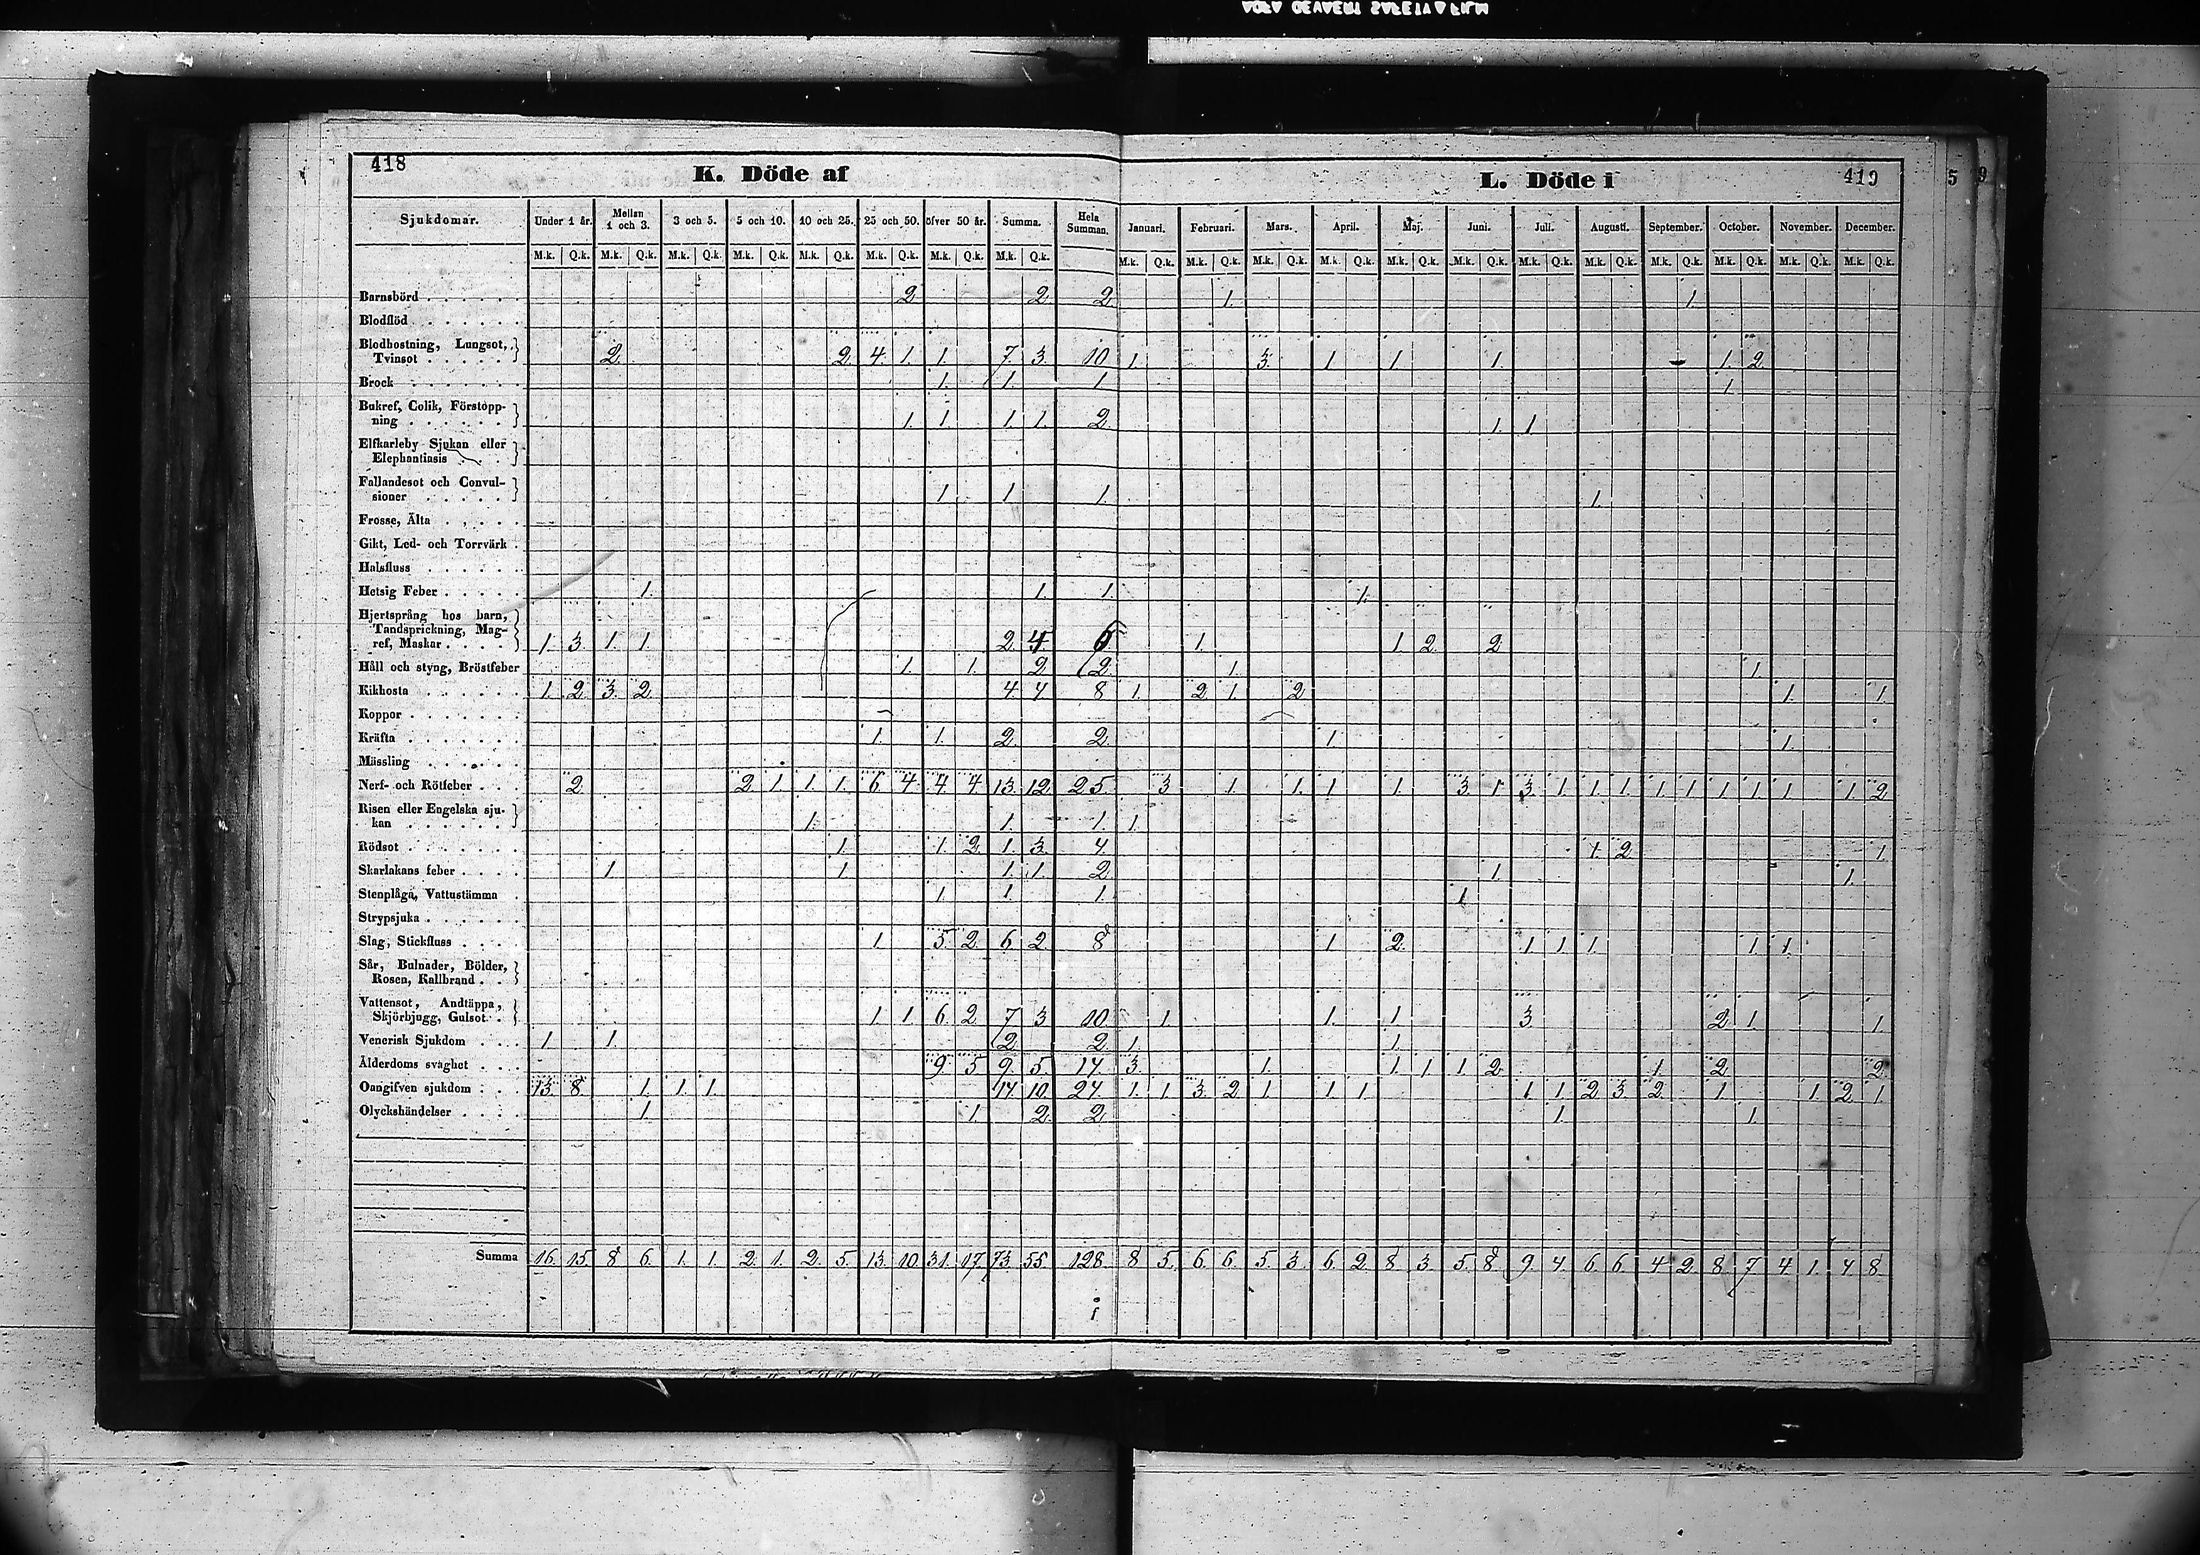 418
K. Döde af
L. Döde i
419
5 9
Sjukdomar. Under 1 år. Mellan 1 och 3. 3 och 5. 5 och 10. 10 och 25. 25 och 50. öfver 50 år. Summa. Hela Summan. Januari. Februari. Mars. April. Maj. Juni. Juli. Augusti. September. October. November. December.
M.k. Q.k. M.k. Q.k. M.k. Q.k. M.k. Q.k. M.k. Q.k. M.k. Q.k. M.k. Q.k. M.k. Q.k. M.k. Q.k. M.k. Q.k. M.k. Q.k. M.k. Q.k. M.k. Q.k. M.k. Q.k. M.k. Q.k. M.k. Q.k. M.k. Q.k. M.k. Q.k. M.k. Q.k. M.k. Q.k.
Barnsbörd . . . . . . 2 2 2 1. 1.
Blodflöd . . . . . . .
Blodhostning, Lungsot,
Tvinsot . . . . . . 2 2 4. 1. 1. 7. 3. 10 1. 3. 1 1 1. 1. 2
Brock . . . . . . . 1. 1. 1 1
Bukref, Colik, Förstopp-
ning . . . . . . 1. 1 1. 1. 2 1. 1
Elfkarleby Sjukan eller
Elephantiasis . . .
Fallandesot och Convul-
sioner . . . . . 1 1 1. 1.
Frosse, Älta . . . . .
Gikt, Led- och Torrvärk .
Halsfluss . . . . . .
Hetsig Feber . . . . . 1. 1. 1. 1.
Hjertsprång hos barn,
Tandsprickning, Mag-
ref, Maskar . . . . 1. 3 1. 1 2 4 6 1. 1. 2 2
Håll och styng, Bröstfeber 1. 1. 2 2. 1. 1.
Kikhosta . . . . . . 1. 2 3. 2 4 4 8 1. 2 1. 2 1. 1.
Koppor . . . . . . .
Kräfta . . . . . . . 1. 1. 2 2. 1 1.
Mässling . . . . . .
Nerf- och Rötfeber . . . 2 2 1 1. 1. 6 4 4 4 13. 12. 25. 3 1 1. 1 1. 3. 1 3. 1. 1. 1. 1. 1. 1. 1. 1. 1. 2
Risen eller Engelska sju-
kan . . . . . . 1. 1. 1. 1.
Rödsot . . . . . . . 1. 1. 2 1. 3. 4. 1. 2 1
Skarlakans feber . . . . 1 1 1. 1. 2 1. 1.
Stenplåga, Vattustämma . 1. 1. 1. 1
Strypsjuka . . . . . .
Slag, Stickfluss . . . . 1 5 2 6 2 8 1 2. 1 1. 1. 1. 1.
Sår, Bulnader, Bölder,
Rosen, Kallbrand . .
Vattensot, Andtäppa,
Skjörbjugg, Gulsot . . 1. 1 6 2 7 3 10. 1. 1. 1 3 2 1 1
Venerisk Sjukdom . . . 1. 1 2 2 1. 1.
Ålderdoms svaghet . . . 9. 5 9. 5. 14. 3. 1. 1 1 1 2 1 2 2
Oangifven sjukdom . . . 13. 8 1. 1. 1. 14. 10. 24 1. 1. 3. 2 1 1. 1 1 1. 2 3. 2 1. 1. 2 1.
Olyckshändelser . . . . 1. 1. 2. 2 1. 1.
Summa 16. 15. 8 6. 1. 1. 2. 1. 2 5. 13. 10 31. 17. 73. 55. 128. 8 5. 6. 6. 5. 3. 6. 2 8. 3. 5. 8. 9. 4. 6. 6. 4 2. 8. 7 4 1. 4 8.